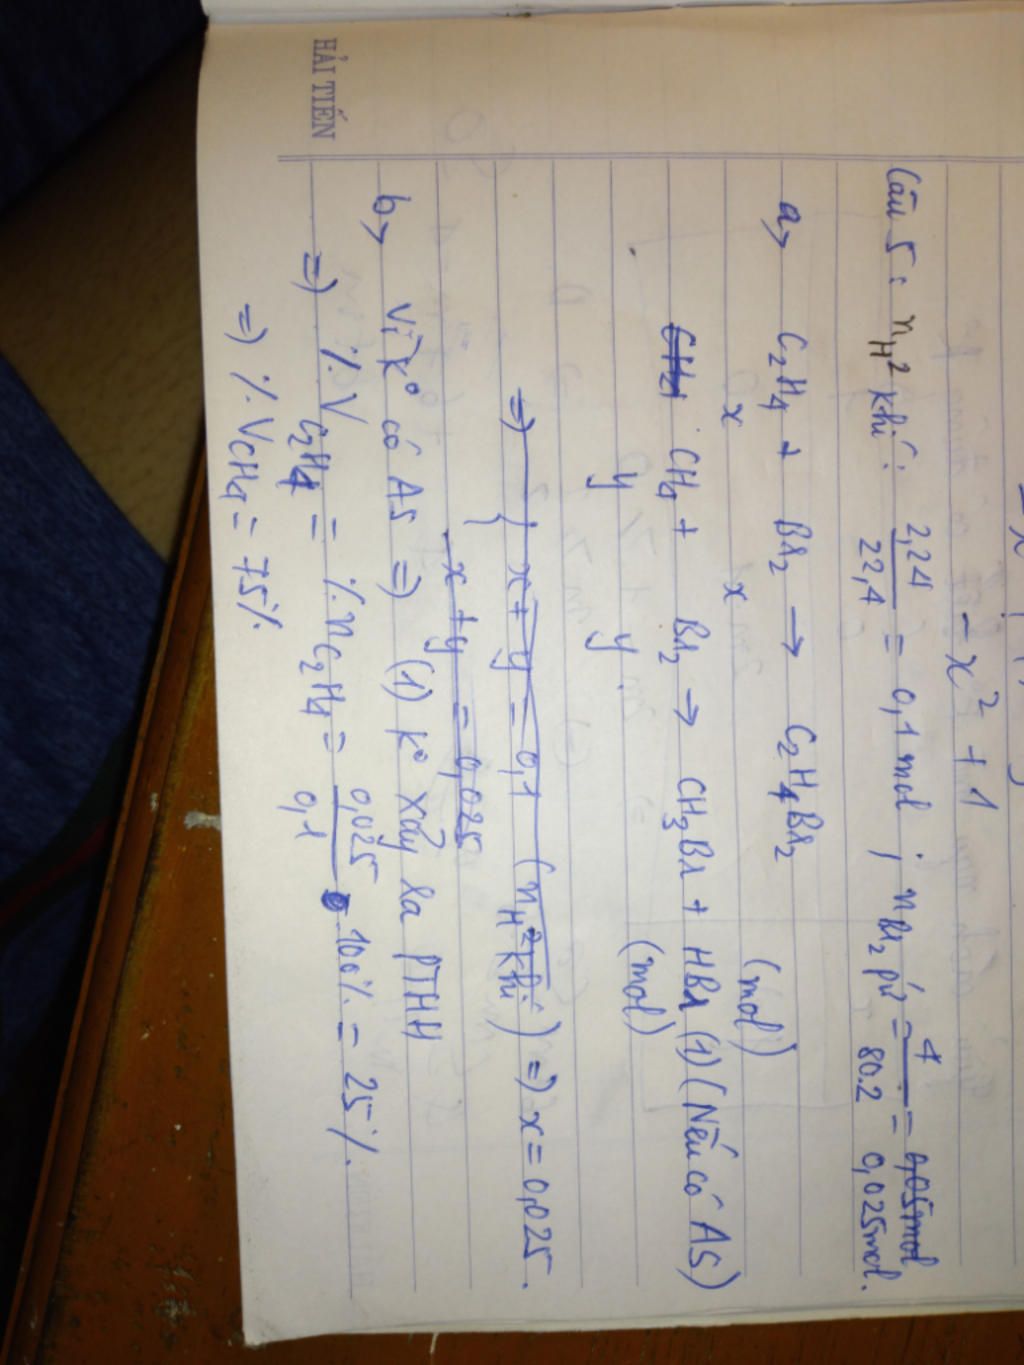 - x² + 1
Câu 5: nH² khí: 2,24 / 22,4 = 0,1 mol ; nBr₂ pứ = 4 / 80.2 = 0,05mol 0,025mol.
a, C₂H₄ + Br₂ → C₂H₄Br₂
x x (mol)
CH₄ CH₄ + Br₂ → CH₃Br + HBr (1) (Nếu có AS)
y y (mol)
=> { x + y = 0,1 (nH² khí) => x = 0,025.
x + y = 0,025
b, Vì k° có AS => (1) k° xảy ra PTHH
=> % VC₂H₄ = % nC₂H₄ = 0,025 / 0,1 . 100% = 25%.
=> % VCH₄ = 75%.
HẢI TIẾN